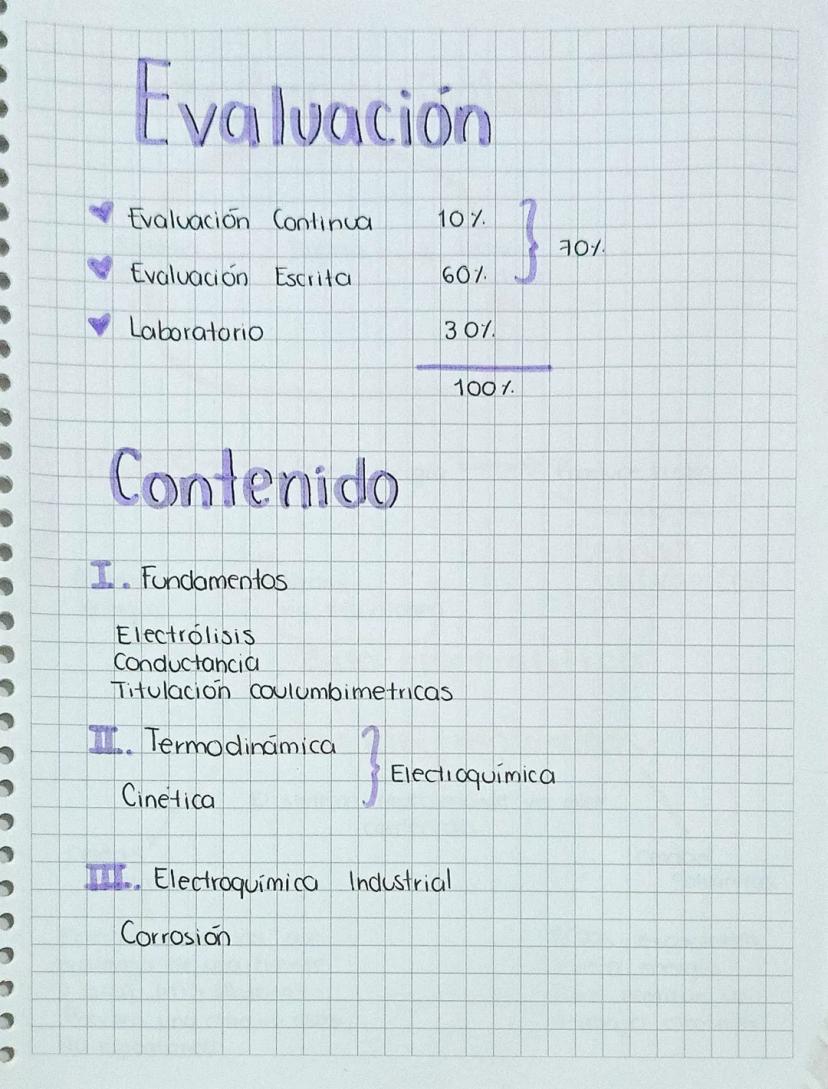 Evaluación
Evaluación Continua 10% 70%
Evaluación Escrita 60%
Laboratorio 30%
100%
Contenido
I. Fundamentos
Electrólisis
Conductancia
Titulación coulumbimetricas
II. Termodinámica
Electroquímica
Cinética
III. Electroquímica Industrial
Corrosión